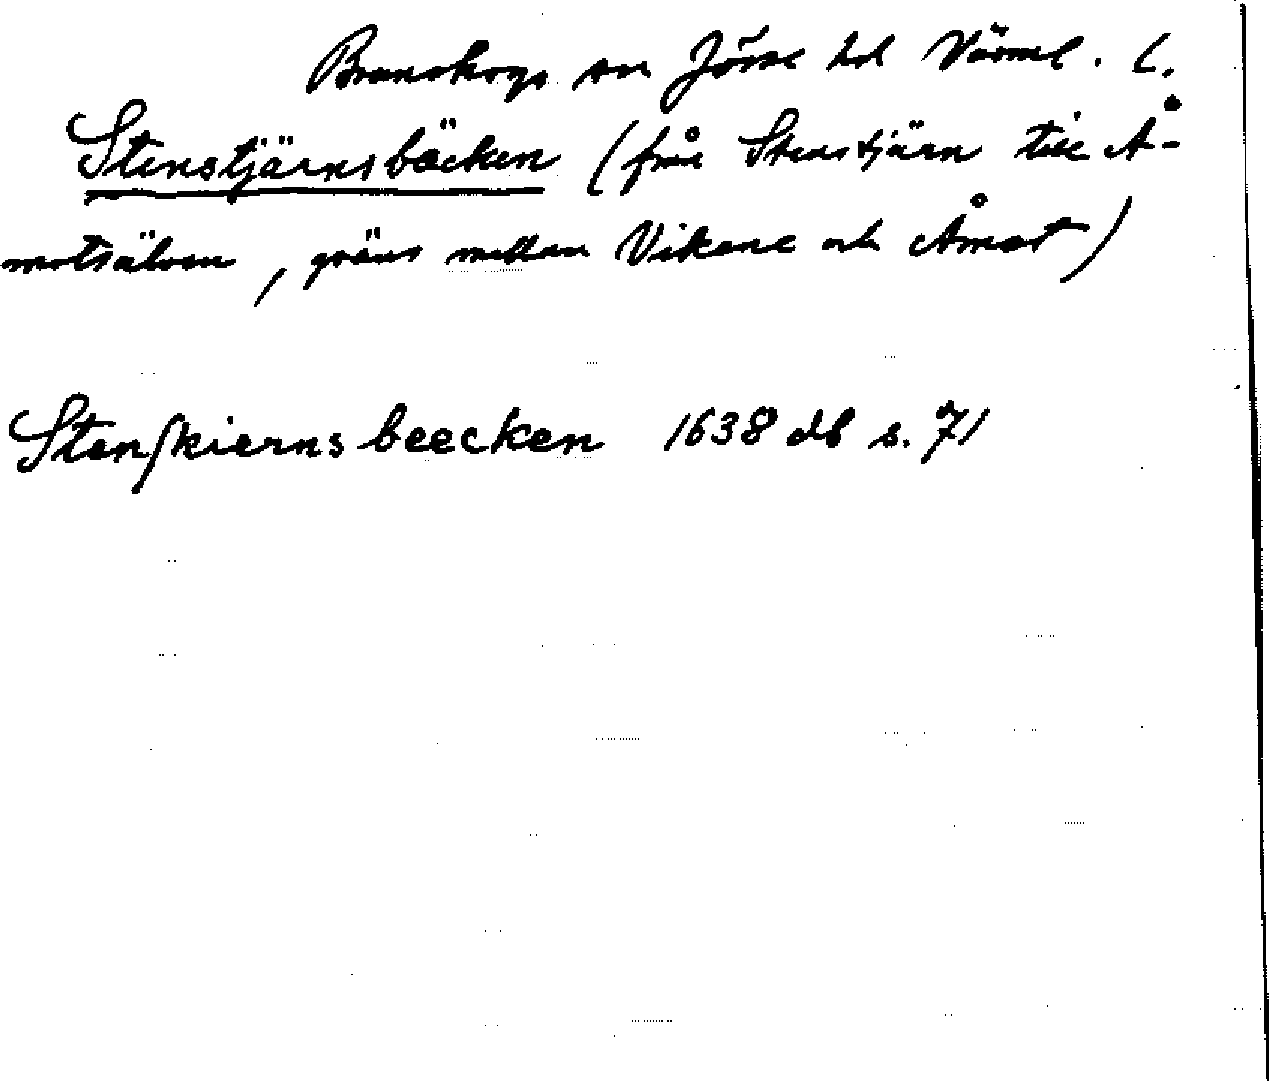 Brunskogs sn Jösse hd Värml. l.
Stenstjärnsbäcken (från Stenstjärn till Å-
motsälven, gräns mellan Vikene och Åmot)
Stenſkierns beecken 1638 db s. 71